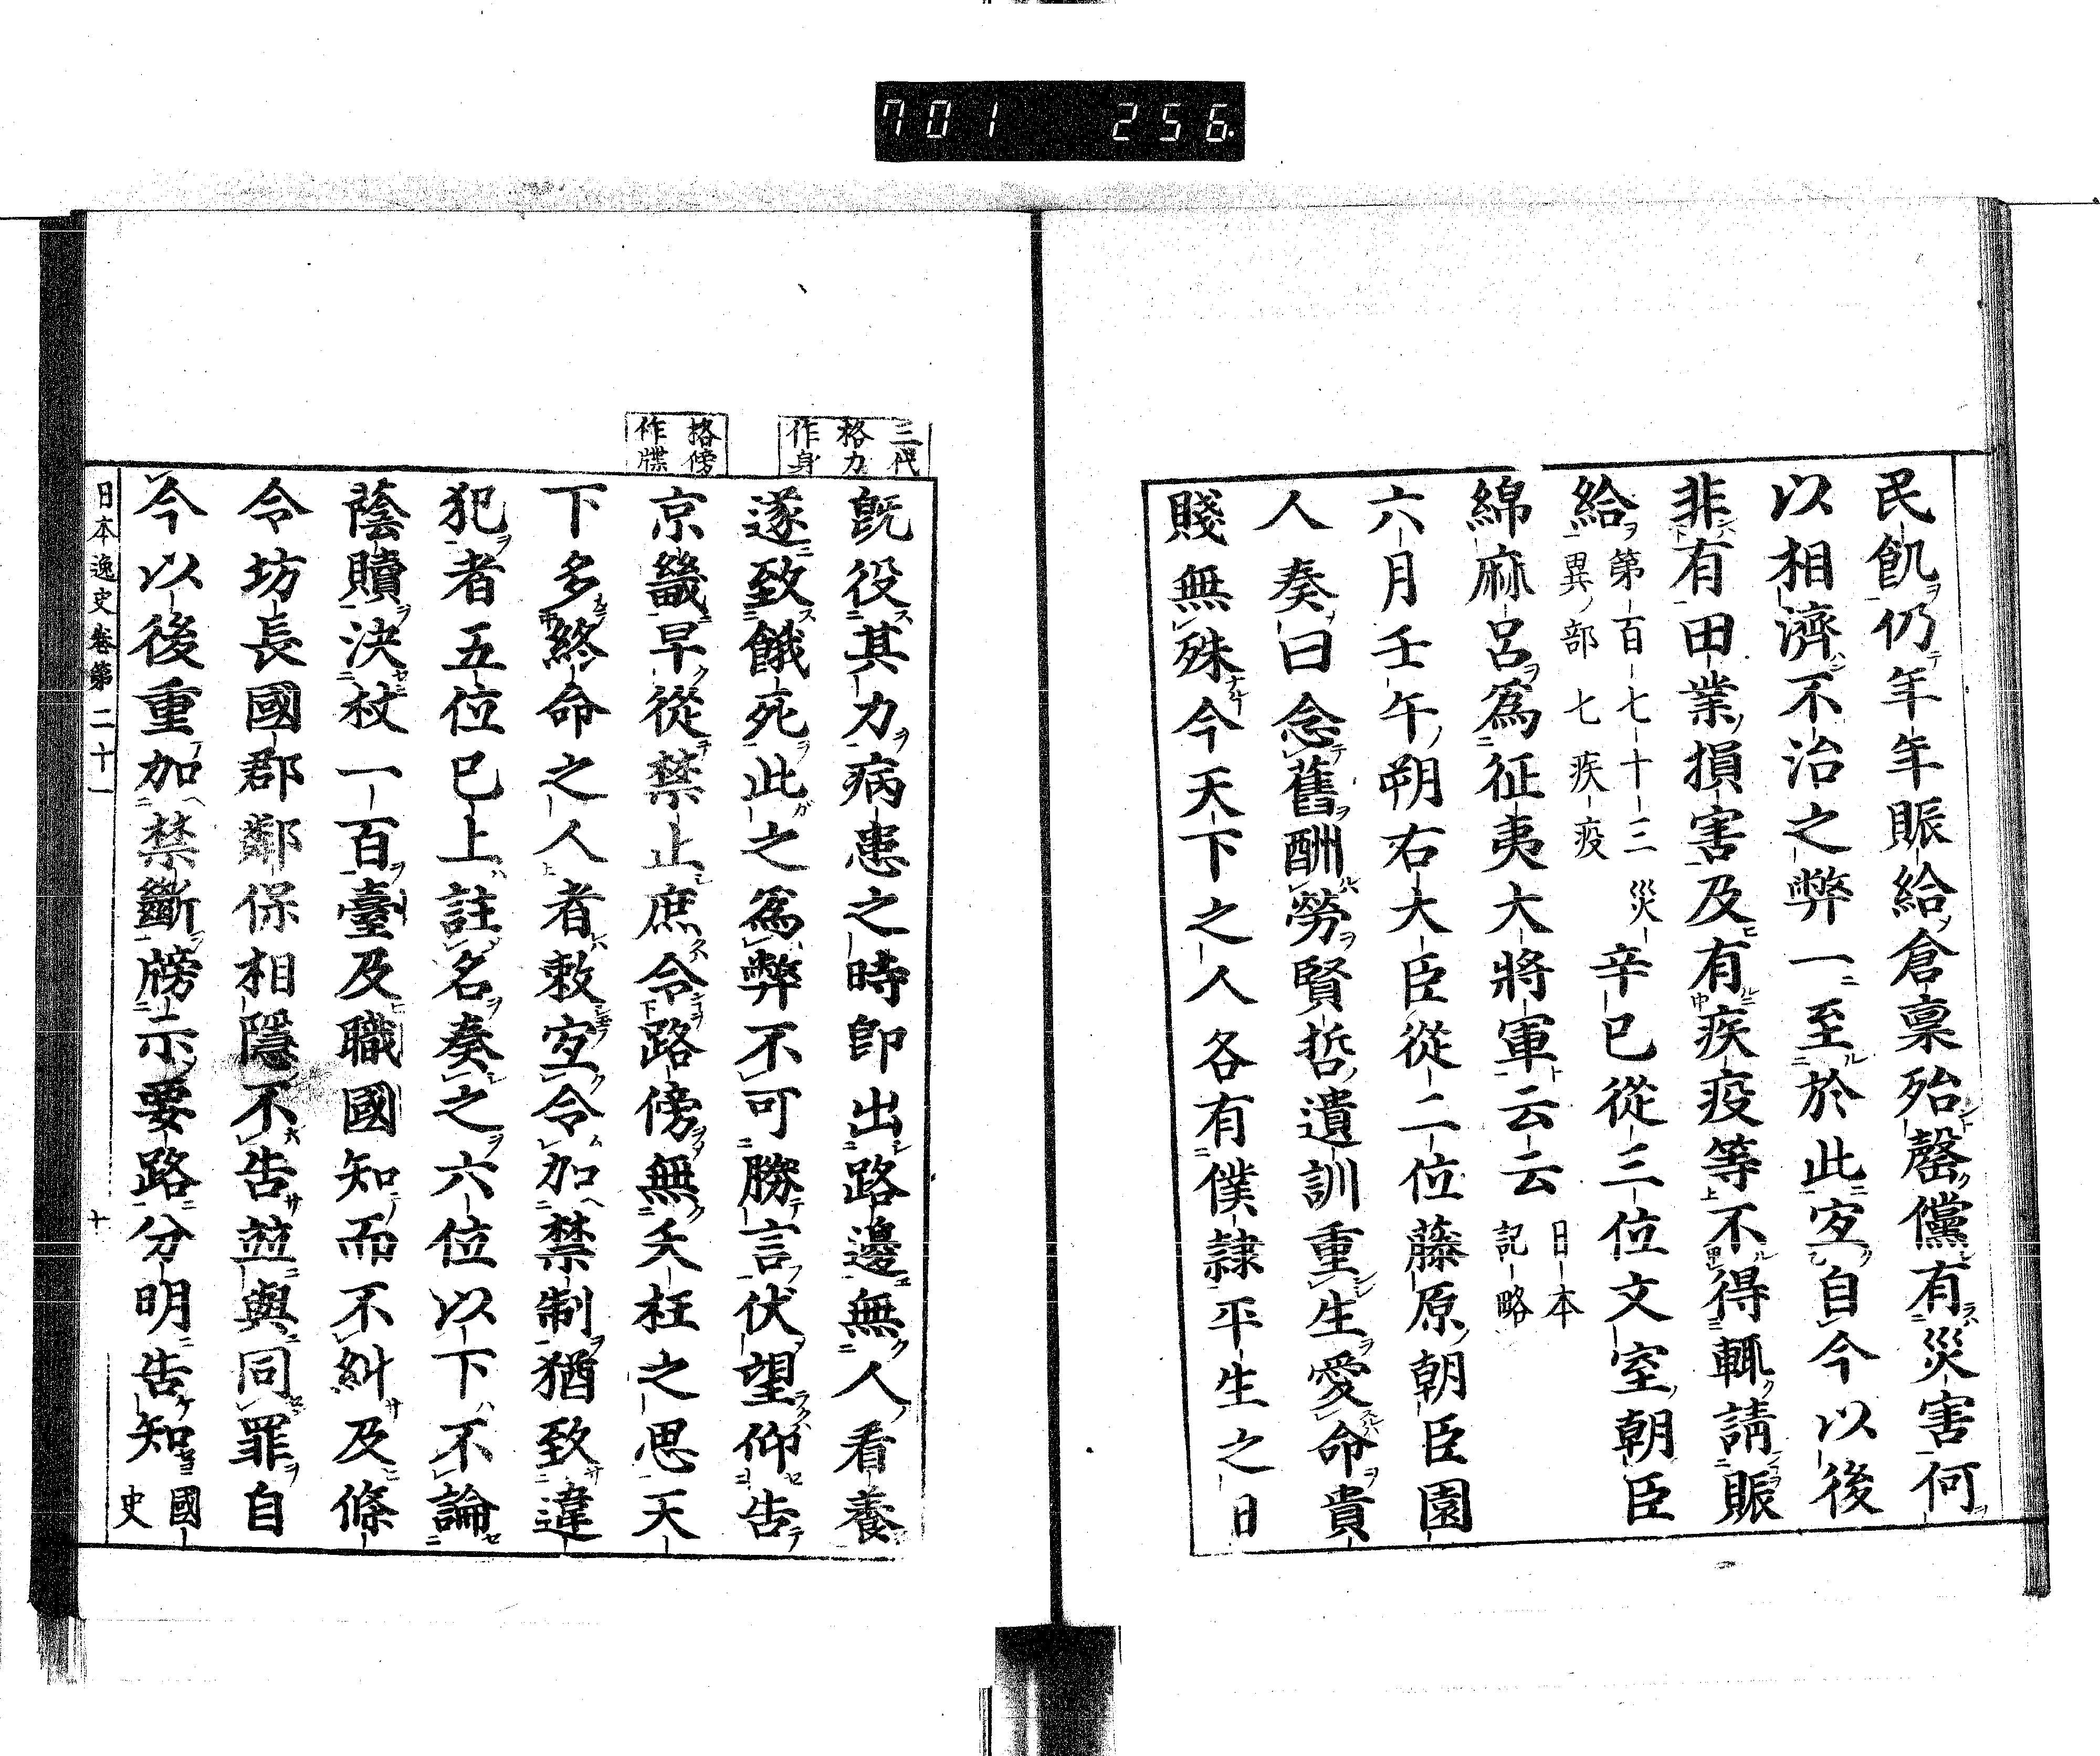 701 256.
民飢仍年年賑給倉稟殆罄儻有災害何
以相濟不治之弊一至於此宜自今以後
非有田業損害及有疾疫等不得輒請賑
給第百七十三災異部七疾疫辛巳從三位文室朝臣
綿麻呂爲征夷大將軍云云日本記略
六月壬午朔右大臣從二位藤原朝臣園
人奏曰念舊酬勞賢哲遺訓重生愛命貴
賤無殊今天下之人各有僕隷平生之日
三代
格力
作身
格傍
作牒
既役其力病患之時即出路邊無人看養
遂致餓死此之爲弊不可勝言伏望仰告
京畿早從禁止庶令路傍無夭枉之思天
下多終命之人者敕宜令加禁制猶致違
犯者五位已上註名奏之六位以下不論
蔭贖決杖一百臺及職國知而不糾及條
令坊長國郡鄰保相隱不告並與同罪自
今以後重加禁斷牓示要路分明告知國史
日本逸史卷第二十一 十